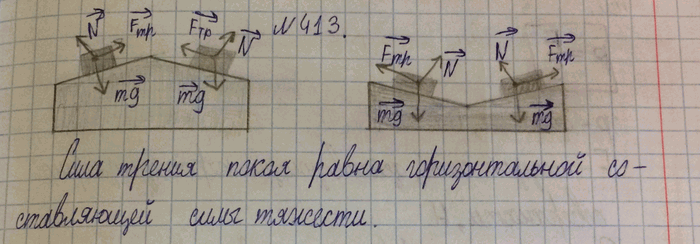 N Fтр Fтр N №413.
Fтр N N Fтр
mg mg mg mg
Сила трения покоя равна горизонтальной со-
ставляющей силы тяжести.